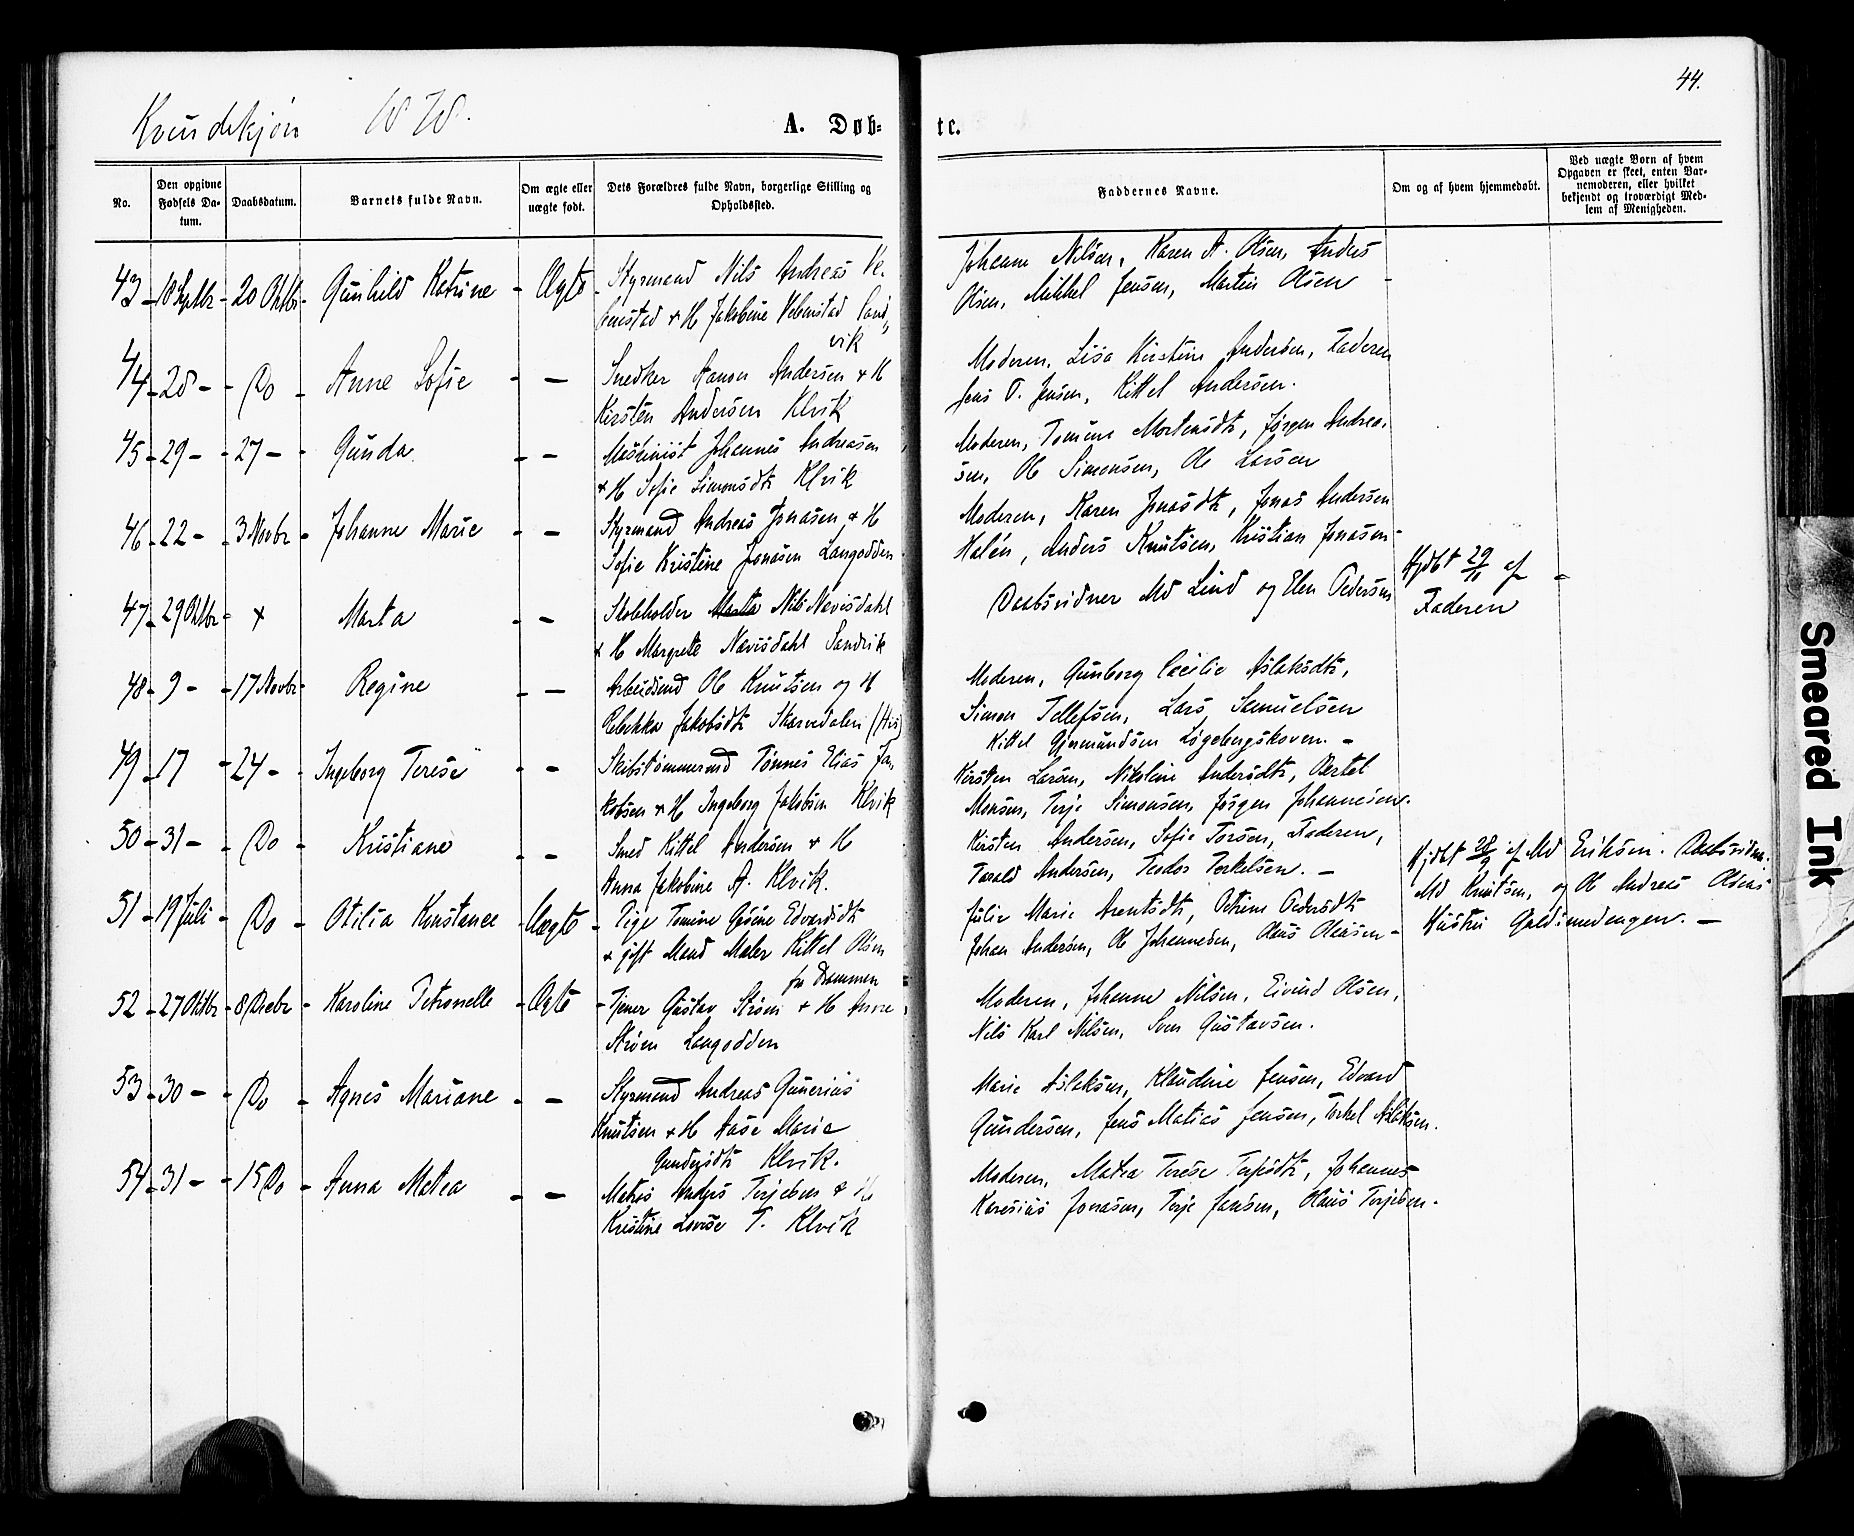 44.
Kvindekjøn 1878.
A. Døb- te.
No.
Den opgivne Fødsels Da-tum.
Daabsdatum.
Barnets fulde Navn.
Om ægte eller uægte født.
Dets Forældres fulde Navn, borgerlige Stilling og Opholdssted.
Faddernes Navne.
Om og af hvem hjemmedøbt.
Ved uægte Børn af hvem Opgaven er skeet, enten Bar-nemoderen, eller hvilket bekjendt og troværdigt Med-lem af Menigheden.
43 - 18 Septbr - 20 Oktbr - Gunhild Katrine - Ægte - Styrmand Nils Andreas Ve-
benstad + H Jakobine Vebenstad Sand„
vik
Johanne Nilsen, Karen A. Olsen, Anders
Olsen, Mikkel Jensen, Martin Olsen -
44 - 28 - - Do - Anne Sofie - - Snedker Aanon Andersen + H
Kirsten Andersen Klvik
Moderen, Lisa Kirstine Andersen, Faderen
Jens T. Jensen, Kittel Andersen.
45 - 29 - - 27 - - Gunda - - Maskinist Johannes Andreasen
+ H Sofie Simonsdtr Klvik
Moderen, Tomine Mortensdtr, Jørgen Andrea-
sen, Ole Simonsen, Ole Larsen
46 - 22 - - 3 Novbr - Johanne Marie - - Styrmand Andreas Jonasen + H
Sofie Kristine Jonasen Langodden
Moderen, Karen Jonasdtr, Jonas Andersen
Halén, Anders Knutsen, Kristian Jonasen -
47 - 29 Oktbr - + Marta - - Skoleholder Marta Nils Nævisdahl
+ H Margrete Nævisdahl Sandvik
Daabsvidner Md Lind og Elen Pedersen
Hjdbt 29/11 af -
Faderen
48 - 9 - - 17 Novbr - Regine - - Arbeidsmd Ole Knutsen og H
Rebekka Jakobsdtr Skarvedalen (His)
Moderen, Gunborg Cecilie Aslaksdtr,
Simon Tellefsen, Lars Samuelsen
Kittel Gjermundsen Løgebergskoven. -
49 - 17 - 24 - - Ingeborg Terese - - Skibstømmermd Tønnes Elias Ja-
kobsen + H Ingeborg Jakobsen Klvik
Kirsten Larsen, Nikoline Andersdtr, Bertel
Monsen, Terje Simonsen, Jørgen Johannesen.
50 - 31 - - Do - Kristiane - - Smed Kittel Andersen + H
Anna Jakobine A. Klvik.
Kirsten Andersen, Sofie Torsen, Faderen,
Torald Andersen, Teodor Torkelsen. -
51 - 19 Juli - Do - Otilia Konstance - Uægte - Pige Tomine Gusine Edvardsdtr
+ gift Mand Maler Kittel Olsen
fra Drammen
Julie Marie Arentsdtr, Petrine Pedersdtr
Johan Andersen, Ole Johannesen, Olaus Olausen -
Hjdbt 28/7 af Md Eriksen. Daabsvidner.
Md Knutsen, og Ole Andreas Olsens
Hustru Guldsmedengen. -
52 - 27 Oktbr - 8 Decbr - Karoline Petronelle - Ægte - Tjener Gustav Strøm + H Anne
Strøm Langodden
Moderen, Johanne Nilsen, Eivind Olsen,
Nils Karl Nilsen, Sven Gustavsen.
53 - 30 - - Do - Agnes Mariane - - Styrmand Andreas Gunerius
Knutsen + H Aase Marie
Gundersdtr Klvik.
Marie Aslaksen, Klaudine Jensen, Edvard
Gundersen, Jens Matias Jensen, Torkel Aslaksen.
54 - 31 - - 15 Do - Anna Matea - - Matros Anders Terjesen + H
Kristine Lovise T. Klvik
Moderen, Matea Terese Terjesdtr, Johannes
Karesius Jonasen, Terje Jansen, Olaus Terjesen.
Smeared Ink